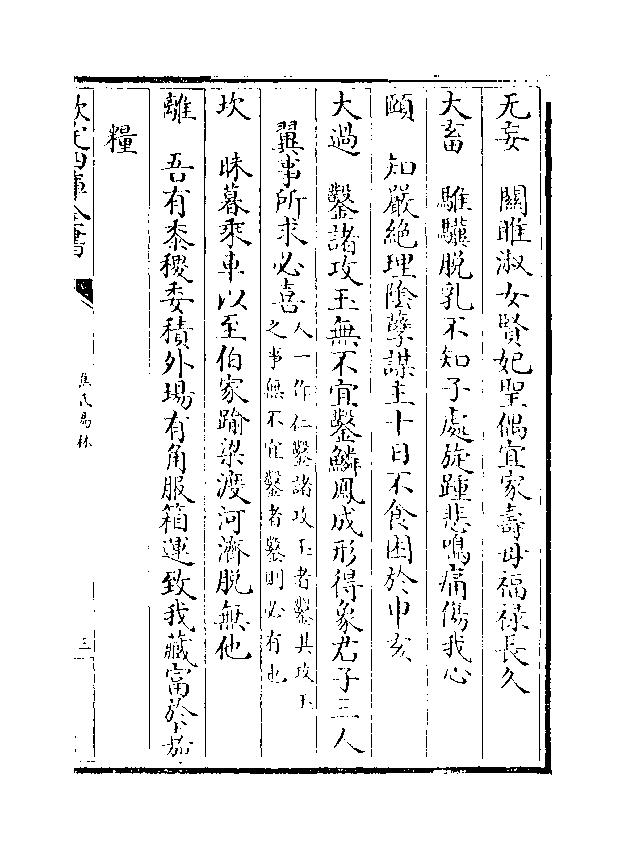 无妄　關雎淑女賢妃聖偶宜家壽母福禄長久
大畜　騅驥脱乳不知子處旋踵悲鳴痛傷我心
頤　知嚴絶理陰孽謀主十日不食困於申亥
大過　鑿諸攻玉無不宜鑿鱗鳳成形得象君子三人
翼事所求必喜人一作仁鑿諸攻玉者鑿其攻玉
之事無不宜鑿者鑿則必有也
坎　昧暮乘車以至伯家踰梁渡河濟脱無他
離　吾有黍稷委積外場有角服箱運致我藏富於嘉
糧
欽定四庫全書
焦氏易林
三